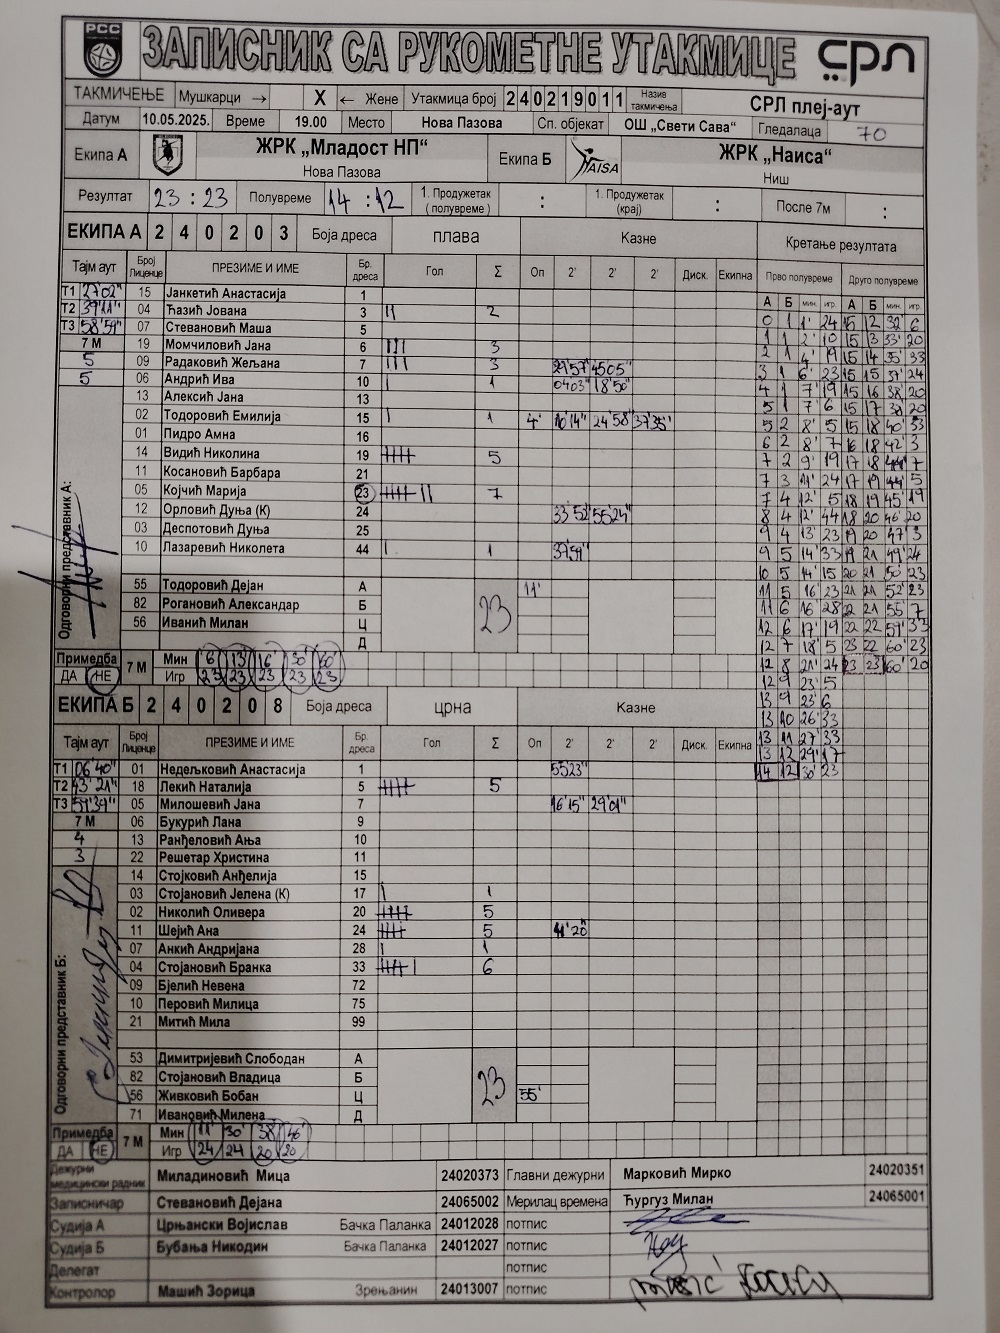 РСС
ЗАПИСНИК СА РУКОМЕТНЕ УТАКМИЦЕ
СРЛ
ТАКМИЧЕЊЕ Мушкарци → X ← Жене Утакмица број 240219011 Назив такмичења СРЛ плеј-аут
Датум 10.05.2025. Време 19.00 Место Нова Пазова Сп. објекат ОШ „Свети Сава“ Гледалаца 70
Екипа А ЖРК „Младост НП“ Нова Пазова Екипа Б NAISA ЖРК „Наиса“ Ниш
Резултат 23 : 23 Полувреме 14 : 12 1. Продужетак (полувреме) : 1. Продужетак (крај) : После 7м :
ЕКИПА А 2 4 0 2 0 3 Боја дреса плава Казне Кретање резултата
Тајм аут Број Лиценце ПРЕЗИМЕ И ИМЕ Бр. дреса Гол Σ Оп 2' 2' 2' Диск. Екипна Прво полувреме Друго полувреме
А Б мин. игр. А Б мин. игр.
Т1 27'02" 15 Јанкетић Анастасија 1
Т2 39'11" 04 Ћазић Јована 3 || 2
Т3 58'59" 07 Стевановић Маша 5
7 М 19 Момчиловић Јана 6 ||| 3
5 09 Радаковић Жељана 7 ||| 3 29'57" 45'05"
5 06 Андрић Ива 10 | 1 04'03" 18'50"
13 Алексић Јана 13
02 Тодоровић Емилија 15 | 1 4' 10'14" 24'58" 37'35"
01 Пидро Амна 16
14 Видић Николина 19 5
11 Косановић Барбара 21
05 Којчић Марија 23 7
12 Орловић Дуња (К) 24 33'52" 55'24"
03 Деспотовић Дуња 25
10 Лазаревић Николета 44 | 1 37'59"
55 Тодоровић Дејан А 11'
82 Рогановић Александар Б 23
56 Иванић Милан Ц
Д
Одговорни представник А:
Примедба ДА НЕ 7 М Мин 6 13 16' 30' 60'
Игр 23 23 23 23 23
0 1 1' 24 15 12 32' 6
1 1 2' 10 15 13 33' 20
2 1 4' 19 15 14 35' 33
3 1 6' 23 15 15 37' 24
4 1 7' 19 15 16 38' 20
5 1 7' 6 15 17 38' 20
5 2 8' 5 15 18 40' 33
6 2 8' 7 16 18 42' 3
7 2 9' 19 17 18 44' 7
7 3 11' 24 17 19 44' 5
7 4 12' 5 18 19 45' 19
8 4 12' 44 18 20 46' 20
9 4 13' 23 19 20 47' 3
9 5 14' 33 19 21 49' 24
10 5 14' 15 20 21 50' 23
11 5 16' 23 21 21 52' 23
11 6 16' 28 22 21 55' 7
12 6 17' 19 22 22 57' 33
12 7 18' 5 23 22 60' 23
12 8 21' 24 23 23 60' 20
12 9 23' 5
13 9 23' 6
13 10 26' 33
13 11 27' 33
13 12 29' 17
14 12 30' 23
ЕКИПА Б 2 4 0 2 0 8 Боја дреса црна Казне
Тајм аут Број Лиценце ПРЕЗИМЕ И ИМЕ Бр. дреса Гол Σ Оп 2' 2' 2' Диск. Екипна
Т1 06'40" 01 Недељковић Анастасија 1 55'23"
Т2 43'21" 18 Лекић Наталија 5 5
Т3 57'39" 05 Милошевић Јана 7 16'15" 29'01"
7 М 06 Букурић Лана 9
4 13 Ранђеловић Ања 10
3 22 Решетар Христина 11
14 Стојковић Анђелија 15
03 Стојановић Јелена (К) 17 | 1
02 Николић Оливера 20 5
11 Шејић Ана 24 5 41'20"
07 Анкић Андријана 28 | 1
04 Стојановић Бранка 33 6
09 Бјелић Невена 72
10 Перовић Милица 75
21 Митић Мила 99
53 Димитријевић Слободан А
82 Стојановић Владица Б 23
56 Живковић Бобан Ц 55'
71 Ивановић Милена Д
Одговорни представник Б:
Примедба ДА НЕ 7 М Мин 11' 30' 38' 46'
Игр 24 24 20 20
Дежурни медицински радник Миладиновић Мица 24020373 Главни дежурни Марковић Мирко 24020351
Записничар Стевановић Дејана 24065002 Мерилац времена Ћургуз Милан 24065001
Судија А Црњански Војислав Бачка Паланка 24012028 потпис
Судија Б Бубања Никодин Бачка Паланка 24012027 потпис
Делегат потпис
Контролор Машић Зорица Зрењанин 24013007 потпис